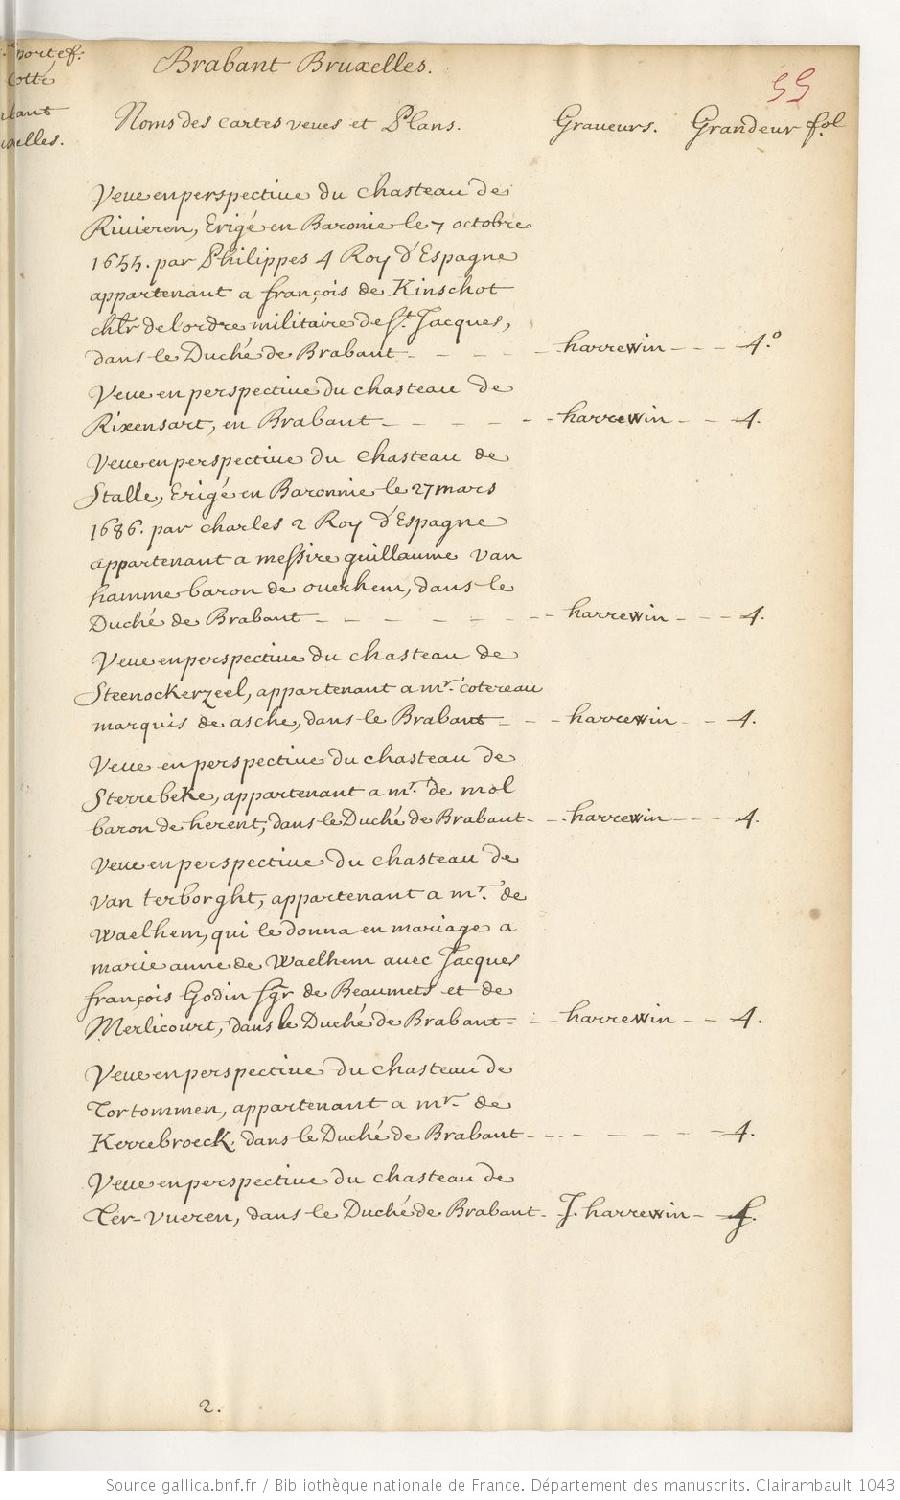 portef.
Cotté
Brabant Bruxelles.
55
Noms des cartes veues et Plans. Graveurs. Grandeur fol
Veue en perspective du chasteau de
Rivieren, Erigé en Baronie le 7 octobre
1655. par Philippes 4 Roy d'Espagne
appartenant a françois de Kinschot
chlr de l'ordre militaire de St. Jacques,
dans le Duché de Brabant - - - - harrewin - - - 4.o
Veue en perspective du chasteau de
Rixensart, en Brabant - - - - - harrewin - - 4.
Veue en perspective du chasteau de
Stalle, Erigé en Baronnie le 27 mars
1686. par charles 2 Roy d'Espagne
appartenant a messire guillaume van
hamme baron de overhem, dans le
Duché de Brabant - - - - - - - harrewin - - - 4.
Veue en perspective du chasteau de
Steenockerzeel, appartenant a mr. cotereau
marquis de asche, dans le Brabant - - - harrewin - - 4.
Veue en perspective du chasteau de
Sterrebeke, appartenant a mr. de mol
baron de herent, dans le Duché de Brabant - - harrewin - - - 4.
Veue en perspective du chasteau de
van terborght, appartenant a mr. de
Waelhem, qui le donna en mariage a
marie anne de Waelhem avec Jacques
françois Godin sgr de Beaumets et de
Merlicourt, dans le Duché de Brabant - - harrewin - - 4.
Veue en perspective du chasteau de
Tortommen, appartenant a mr. de
Kerrebroeck, dans le Duché de Brabant - - - - - - 4.
Veue en perspective du chasteau de
Ter-vueren, dans le Duché de Brabant - J. harrewin - - f.
2.
Source gallica.bnf.fr / Bibliothèque nationale de France. Département des manuscrits. Clairambault 1043